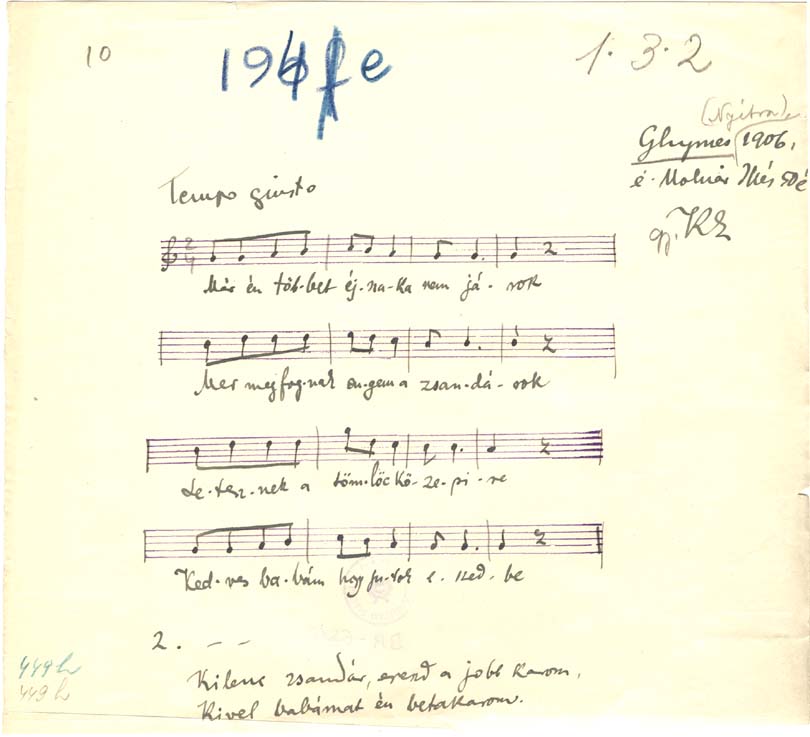 10
1·3·2
(Nyitra)
Ghymes 1906.
é. Molnár Illés 50é
gy. KZ
Tempo giusto
2
4
Már én töb-bet éj-na-ka nem já-rok
Mer megfog-nak en-gem a zsan-dá-rok
Le-tesz-nek a töm-löc kö-ze-pi-re
Ked-ves ba-bám hogy ju-tok e-szed-be
2. – –
Kilenc zsandár, ereszd a jobb karom,
Kivel babámat én betakarom.
449h
449h